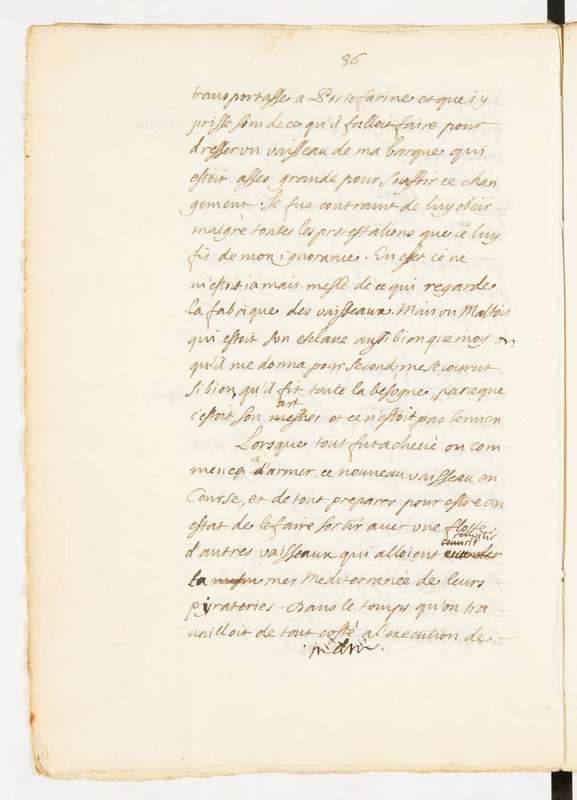 36
transportasse a Portofarine et que j'y
prisse soin de ce qu'il falloit faire pour
dresser un vaisseau de ma barque qui
estoit asses grande pour souffrir ce chan
gement. Je fus contraint de luy obeir
malgré toutes les protestations que je luy
fis de mon ignorance. En effet ce ne
m'estoit jamais meslé de ce qui regarde
la fabrique des vaisseaux. Mais un Maltois
qui estoit son esclave aussi bien que moy
qu'il me donna pour second, me secourut
si bien, qu'il fit toute la besogne, parceque
art
c'estoit son mestier et ce n'estoit pas le mien
Lorsque tout fut achevé on com-
mença d'armer ce nouveau vaisseau en
Course, et de tout preparer pour estre en
estat de le faire sortir avec une flotte
remplir
courir
d'autres vaisseaux qui alloient
la mer Mediterranée de leurs
pyrateries. Dans le temps qu'on tra
vailloit de tout costé a l'execution de